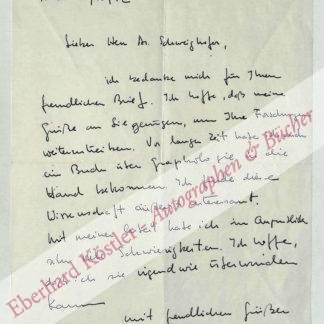 Lieber Herr Dr. Schweighofer,
ich bedanke mich für Ihren
freundlichen Brief. Ich hoffe, daß meine
Grüße an Sie genügen, um Ihre Forschungen
weiterzutreiben. Vor langer Zeit habe ich
ein Buch über Graphologie, in die
Hand bekommen. Ich finde diese
Wissenschaft äußerst interessant.
Mit meiner habe ich im Augenblick
sehr viele Schwierigkeiten. Ich hoffe,
daß ich sie irgendwie überwinden
kann
mit freundlichen Grüßen
Eberhard Köstler - Autographen & Bücher